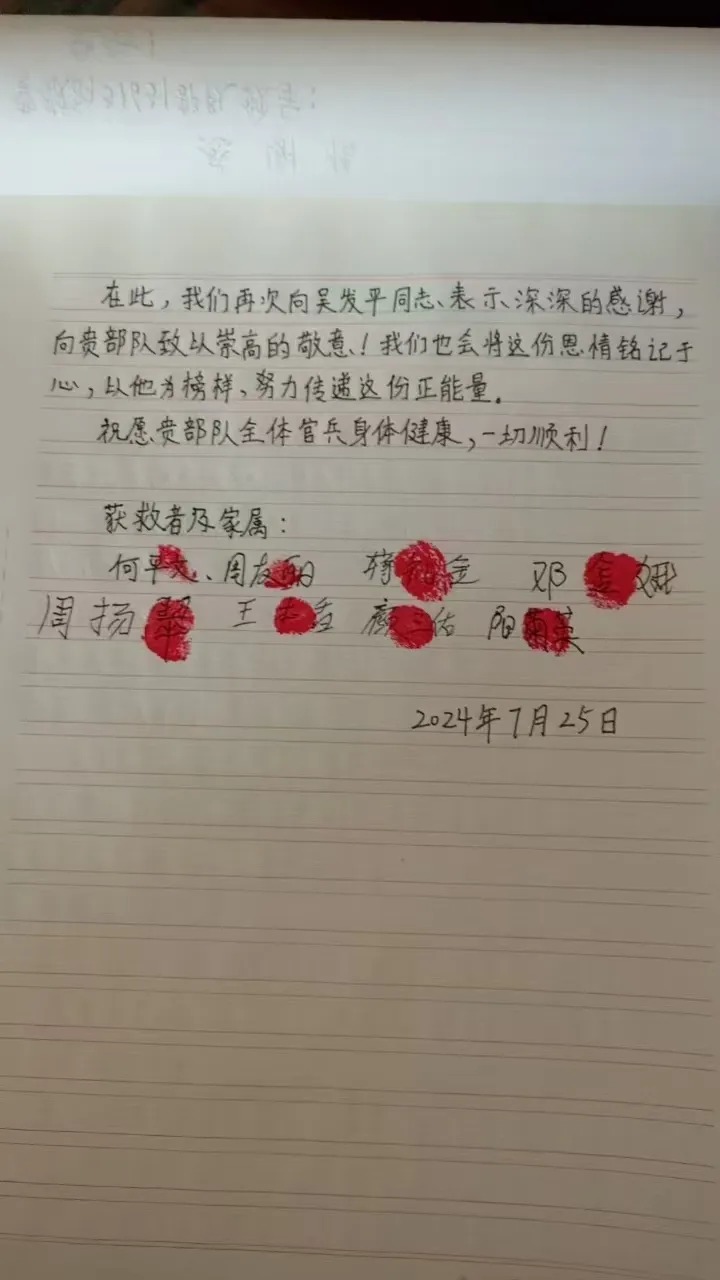 在此，我们再次向吴发平同志、表示、深深的感谢，
向贵部队致以崇高的敬意、！我们也会将这份恩情铭记于
心，以他为榜样、努力传递这份正能量。
祝愿贵部队全体官兵身体健康，一切顺利！
获救者及家属：
何平、周友丽 金 邓金
周扬 王 颜三佑 阳菊英
2024年7月25日